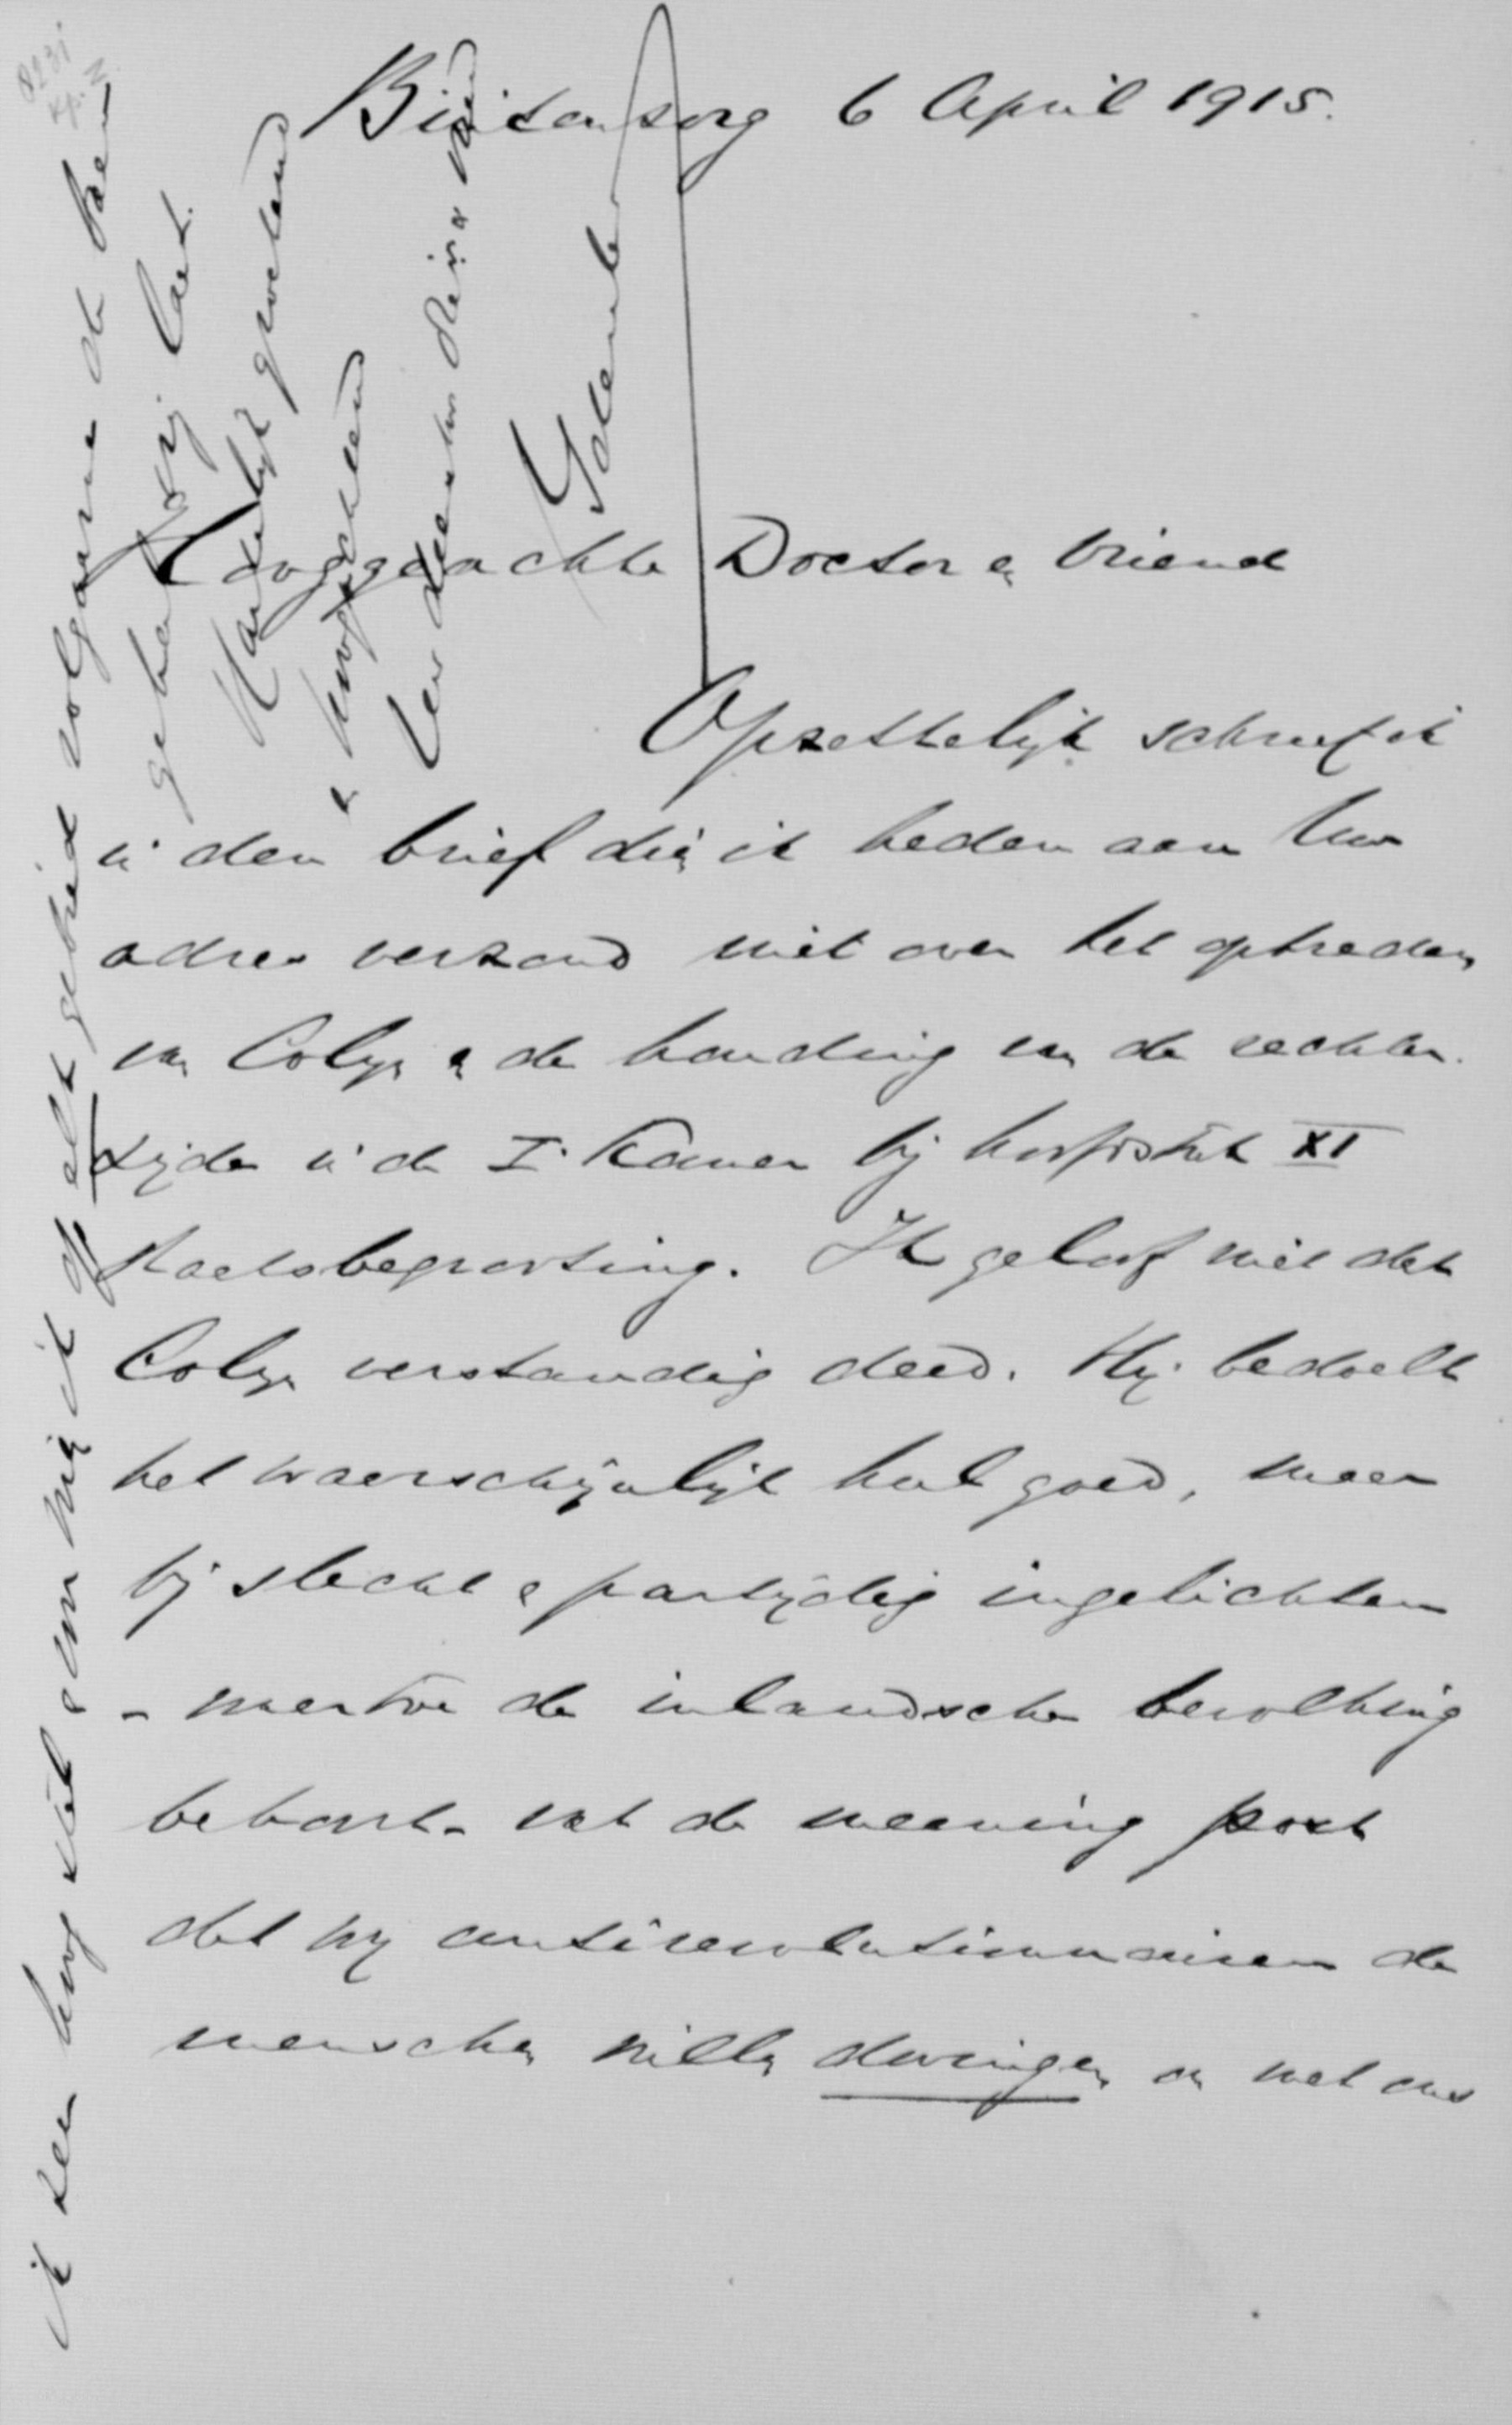 Buitenzorg 6 April 1915.
Hooggeachte Doctor en Vriend
Opzettelijk schreef ik
in den brief dien ik heden aan Uw
adres verzond niet over het optreden
van Colijn en de houding van de rechter-
zijde in de Ie Kamer bij hoofdstuk XI
Staatsbegrooting. Ik geloof niet dat
Colijn verstandig deed. Hij bedoelt
het waarschijnlijk heel goed, maar
bij slecht en partijdig ingelichten
- waartoe de inlandsche bevolking
behoort - vat de meening post
dat wij antirevolutionnairen de
menschen willen dwingen om met ons
ik zeer hoog stel en om wie ik op elk gebied volgaarne
Hartelijk groetend
en hoogachtend
Uw
Idenburg
8231